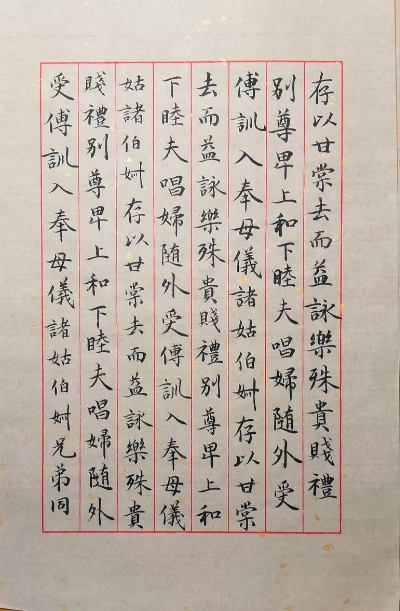 存以甘棠去而益詠樂殊貴賤禮
別尊卑上和下睦夫唱婦随外受
傅訓入奉母儀諸姑伯叔存以甘棠
去而益詠樂殊貴賤禮別尊卑上和
下睦夫唱婦随外受傅訓入奉母儀
姑諸伯叔存以甘棠去而益詠樂殊貴
賤禮別尊卑上和下睦夫唱婦随外
受傅訓入奉母儀諸姑伯叔兄弟同